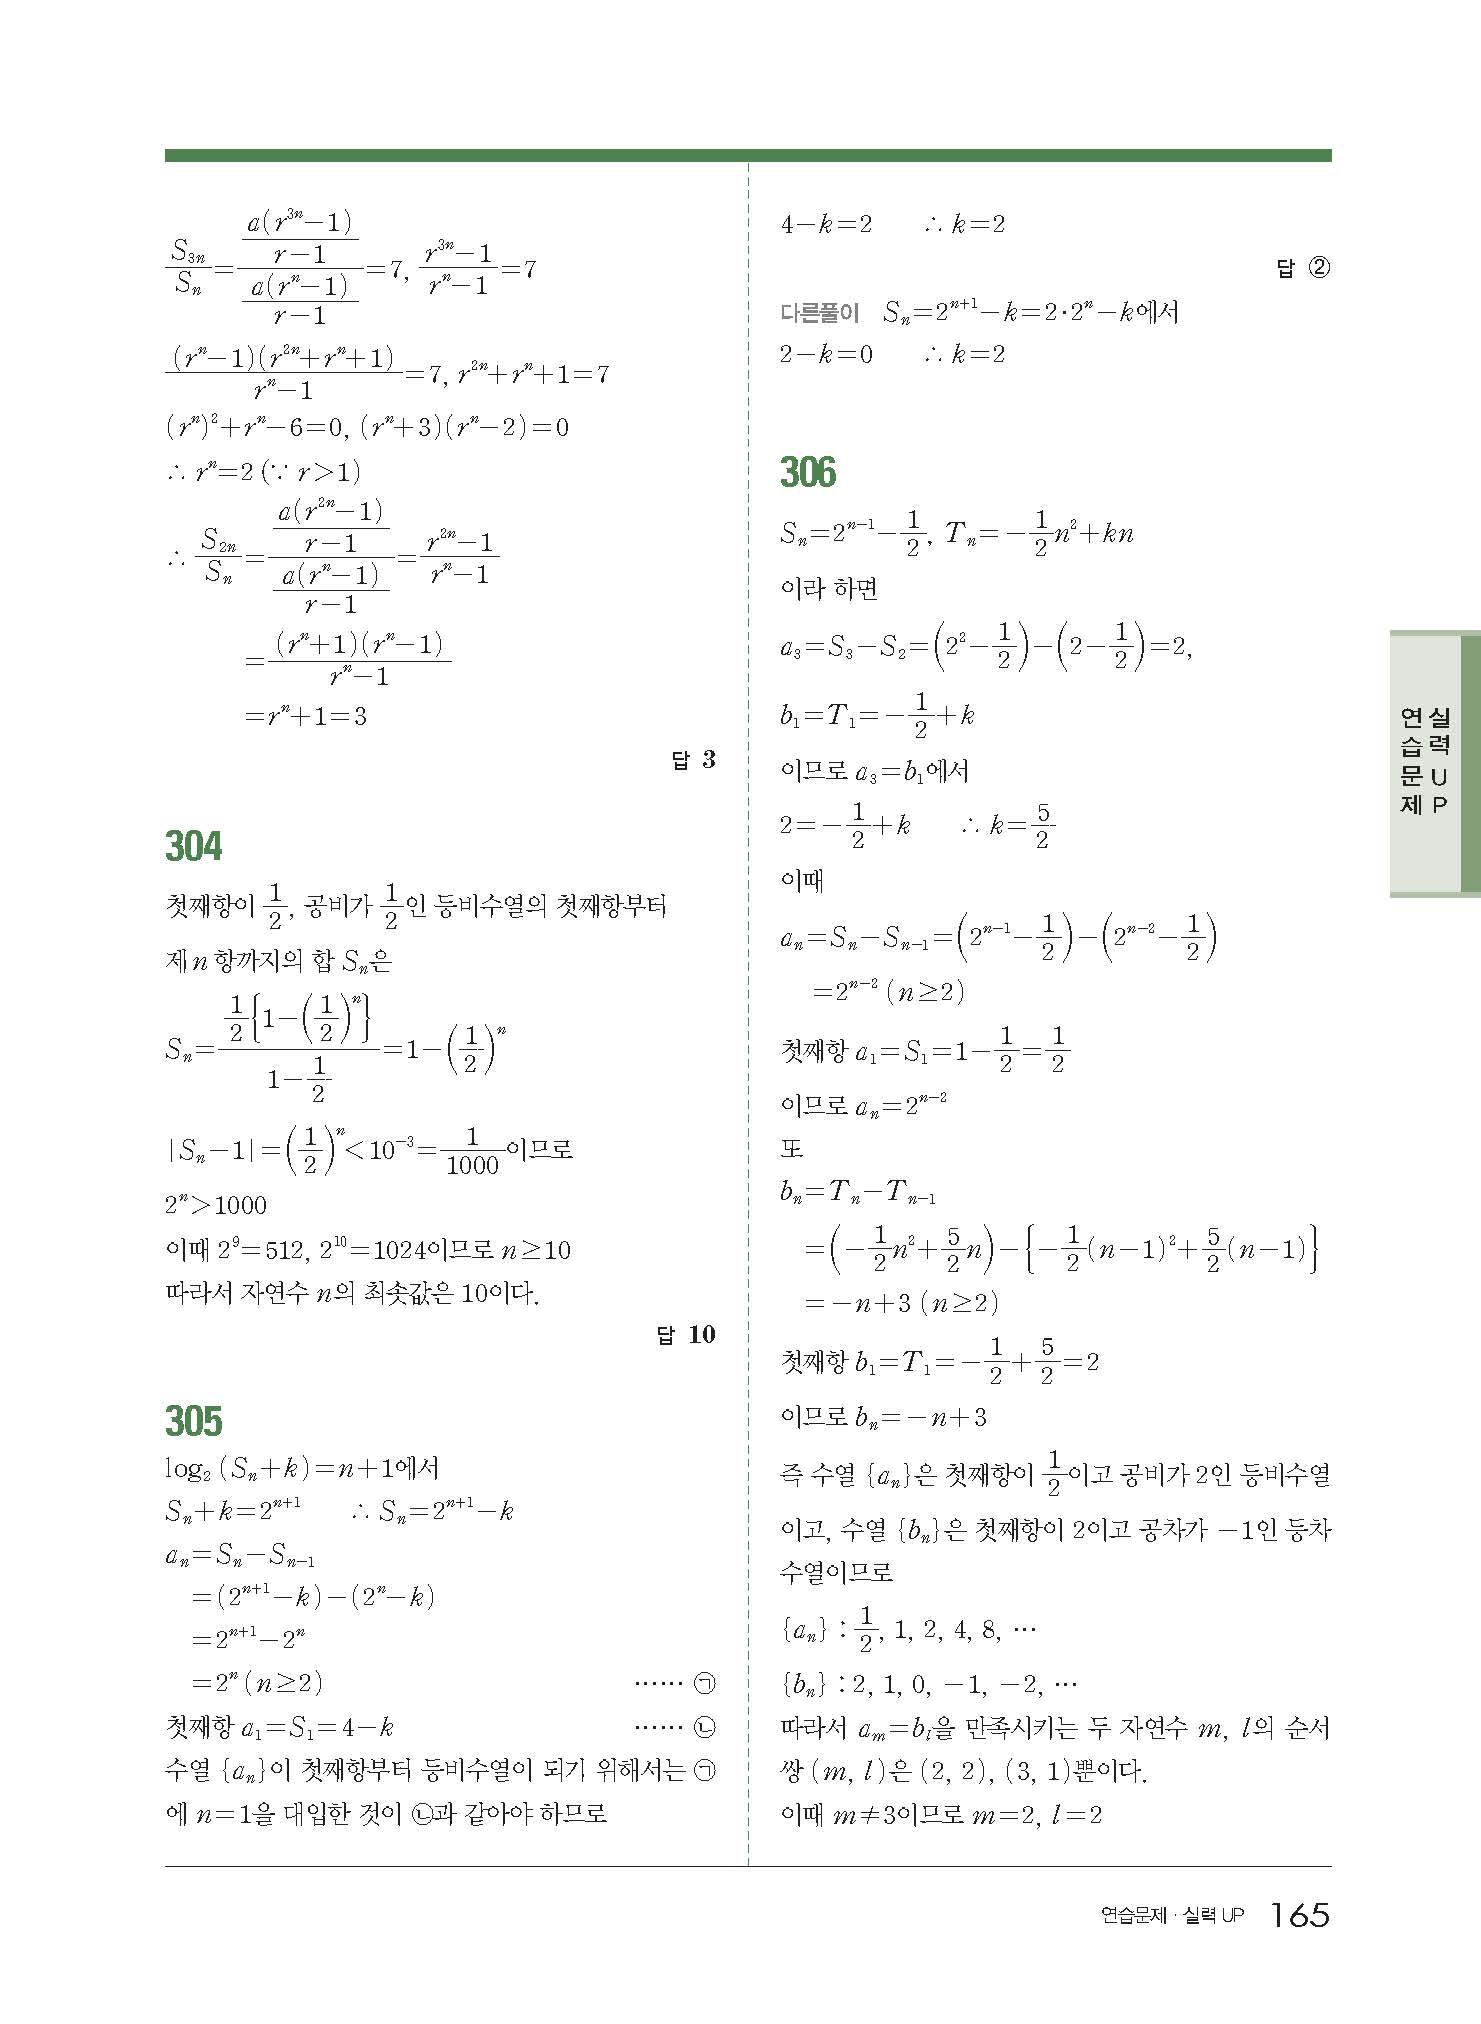 S_{3n}/S_n = {a(r^{3n}-1)/(r-1)}/{a(r^n-1)/(r-1)} = 7, (r^{3n}-1)/(r^n-1) = 7
(r^n-1)(r^{2n}+r^n+1)/(r^n-1) = 7, r^{2n}+r^n+1=7
(r^n)^2+r^n-6=0, (r^n+3)(r^n-2)=0
∴ r^n=2 (∵ r>1)
∴ S_{2n}/S_n = {a(r^{2n}-1)/(r-1)}/{a(r^n-1)/(r-1)} = (r^{2n}-1)/(r^n-1)
= (r^n+1)(r^n-1)/(r^n-1)
=r^n+1=3
답 3
304
첫째항이 1/2, 공비가 1/2인 등비수열의 첫째항부터
제n항까지의 합 S_n은
S_n = (1/2){1-(1/2)^n}/(1-1/2) = 1-(1/2)^n
|S_n-1|=(1/2)^n<10^{-3}=1/1000이므로
2^n>1000
이때 2^9=512, 2^{10}=1024이므로 n≥10
따라서 자연수 n의 최솟값은 10이다.
답 10
305
log_2 (S_n+k)=n+1에서
S_n+k=2^{n+1} ∴ S_n=2^{n+1}-k
a_n=S_n-S_{n-1}
=(2^{n+1}-k)-(2^n-k)
=2^{n+1}-2^n
=2^n (n≥2) …… ㉠
첫째항 a_1=S_1=4-k …… ㉡
수열 {a_n}이 첫째항부터 등비수열이 되기 위해서는 ㉠
에 n=1을 대입한 것이 ㉡과 같아야 하므로
4-k=2 ∴ k=2
답 ②
다른풀이 S_n=2^{n+1}-k=2·2^n-k에서
2-k=0 ∴ k=2
306
S_n=2^{n-1}-1/2, T_n=-1/2n^2+kn
이라 하면
a_3=S_3-S_2=(2^2-1/2)-(2-1/2)=2,
b_1=T_1=-1/2+k
이므로 a_3=b_1에서
2=-1/2+k ∴ k=5/2
이때
a_n=S_n-S_{n-1}=(2^{n-1}-1/2)-(2^{n-2}-1/2)
=2^{n-2} (n≥2)
첫째항 a_1=S_1=1-1/2=1/2
이므로 a_n=2^{n-2}
또
b_n=T_n-T_{n-1}
=(-1/2n^2+5/2n)-{-1/2(n-1)^2+5/2(n-1)}
=-n+3 (n≥2)
첫째항 b_1=T_1=-1/2+5/2=2
이므로 b_n=-n+3
즉 수열 {a_n}은 첫째항이 1/2이고 공비가 2인 등비수열
이고, 수열 {b_n}은 첫째항이 2이고 공차가 -1인 등차
수열이므로
{a_n} : 1/2, 1, 2, 4, 8, …
{b_n} : 2, 1, 0, -1, -2, …
따라서 a_m=b_l을 만족시키는 두 자연수 m, l의 순서
쌍 (m, l)은 (2, 2), (3, 1)뿐이다.
이때 m≠3이므로 m=2, l=2
연습문제
실력UP
연습문제·실력 UP 165